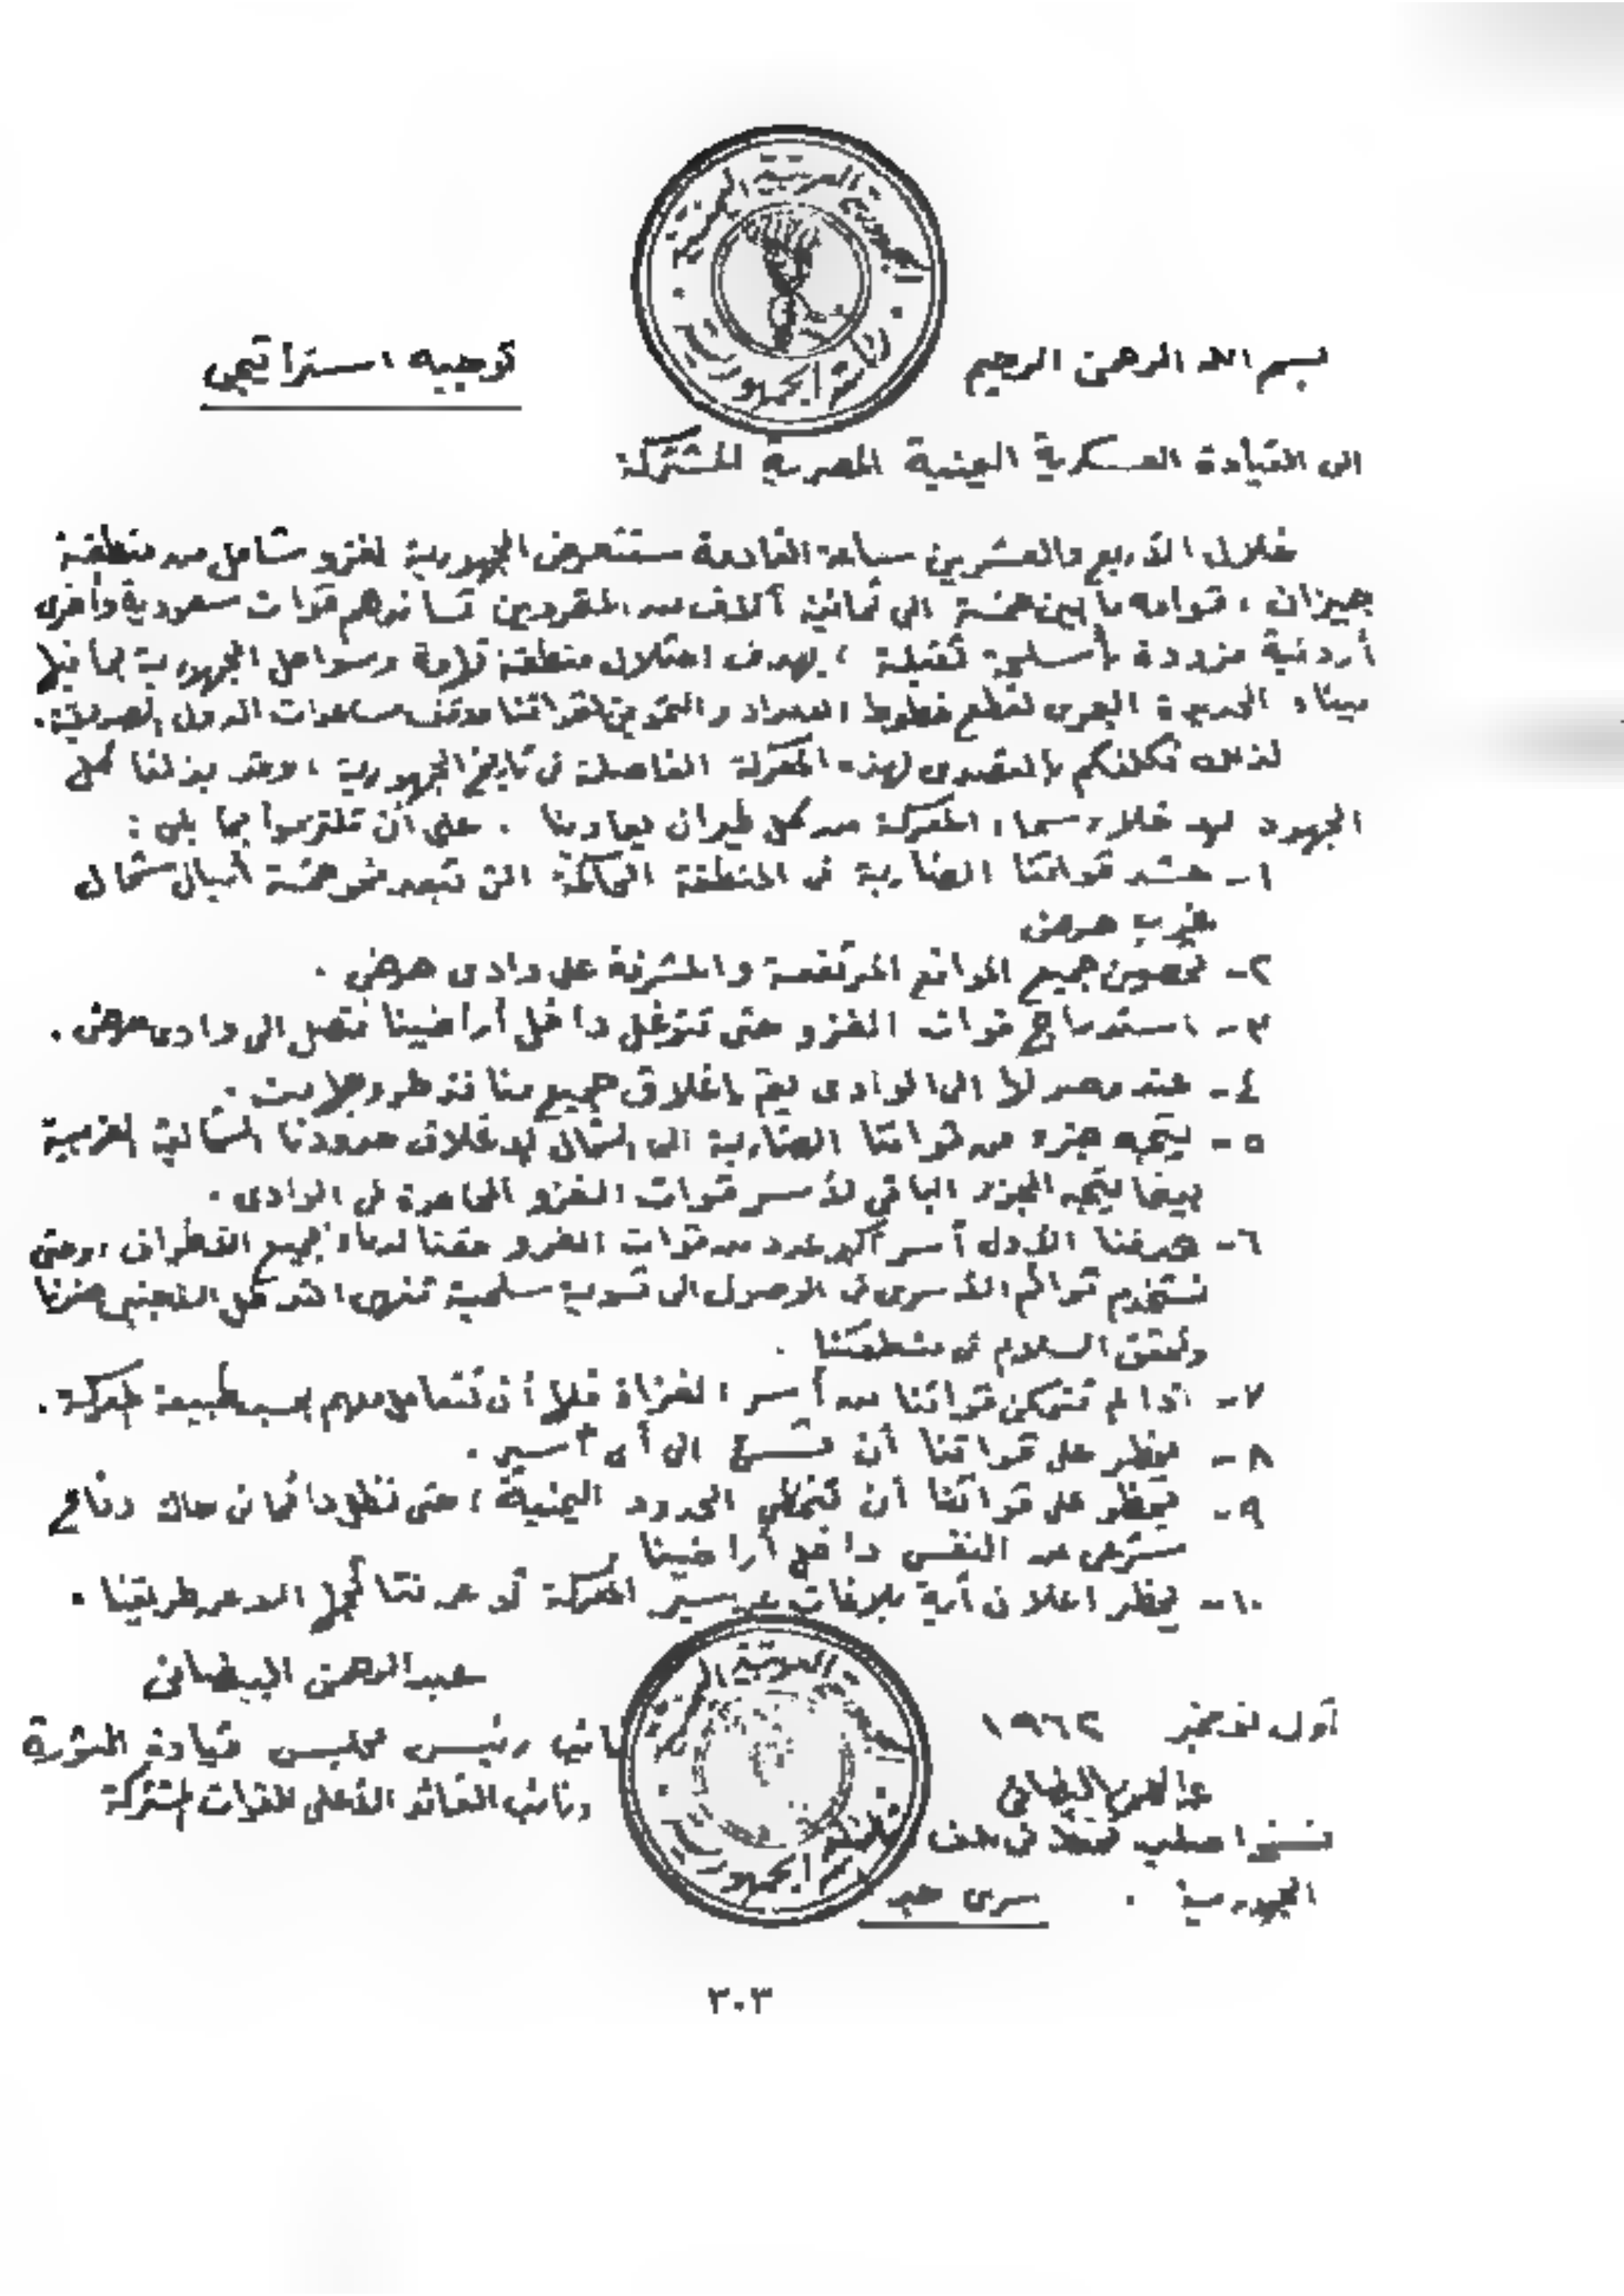 بسم الله الرحمن الرحيم
توجيه استراتيجى
الى القيادة العسكرية اليمنية المصرية المشتركة
خلال الأربع والعشرين ساعة القادمة ستتعرض الجمهورية لغزو شامل من منطقة
جيزان ، قوامه ما بين خمسة الى ثمانية آلاف من المقردين تساندهم قوات سعودية وأخرى
أردنية مزودة بأسلحة ثقيلة ، بهدف احتلال منطقة تهامة وسواحل الجمهورية بما فيها
ميناء الحديدة البحرى لقطع خطوط الامداد والتموين لقواتنا ووقف مساعدات الدول الصديقة .
لذلك نكلفكم بالتصدى لهذه المعركة الفاصلة فى تاريخ الجمهورية ، وقد بذلنا كل
الجهود لإخلاء سماء المعركة من كل طيران يعادينا . على أن تلتزموا بما يلى :
١ - حشد قواتنا الضاربة فى المنطقة الحاكمة التى تبعد نحو خمسة أميال شمال
غرب حرض
٢ - تحصين جميع المواقع المرتفعة والمشرفة على وادى حرض .
٣ - استدراج قوات الغزو حتى تتوغل داخل أراضينا لتصل الى وادى حرض .
٤ - عند وصولها الى الوادى يتم إغلاق جميع منافذ طرو جلايت .
٥ - يتجه جزء من قواتنا الضاربة الى الشمال لإغلاق حدودنا الشمالية الغربية
بينما يتجه الجزء الباقى لأسر قوات الغزو المحاصرة فى الوادى .
٦ - هدفنا الأول أسر أكبر عدد من قوات الغزو حقنا لدماء جميع الأطراف ، وحتى
نستخدم قوائم الأسرى فى الوصول الى تسوية سلمية تنهى التدخل الأجنبى ضدنا
وتحقق السلام فى منطقتنا .
٧ - اذا لم تتمكن قواتنا من أسر الغزاة فلها أن تتعامل معهم بحسب طبيعة المعركة .
٨ - يحظر على قواتنا أن تسئ الى أى أسير .
٩ - يحظر على قواتنا أن تتخطى الحدود اليمنية ، حتى نظل دائما فى حالة دفاع
شرعى عن النفس داخل أراضينا
١٠ - يحظر اعلان أية بلاغات عن سير المعركة أو عن نتائجها الا عن طريقنا .
عبد الرحمن البيضانى
نائب رئيس مجلس قيادة الثورة
ونائب القائد الأعلى للقوات المشتركة
أول نوفمبر ١٩٦٢
عبد الرحمن البيضانى
الجمهورية .
سرى جدا
٣٠٣